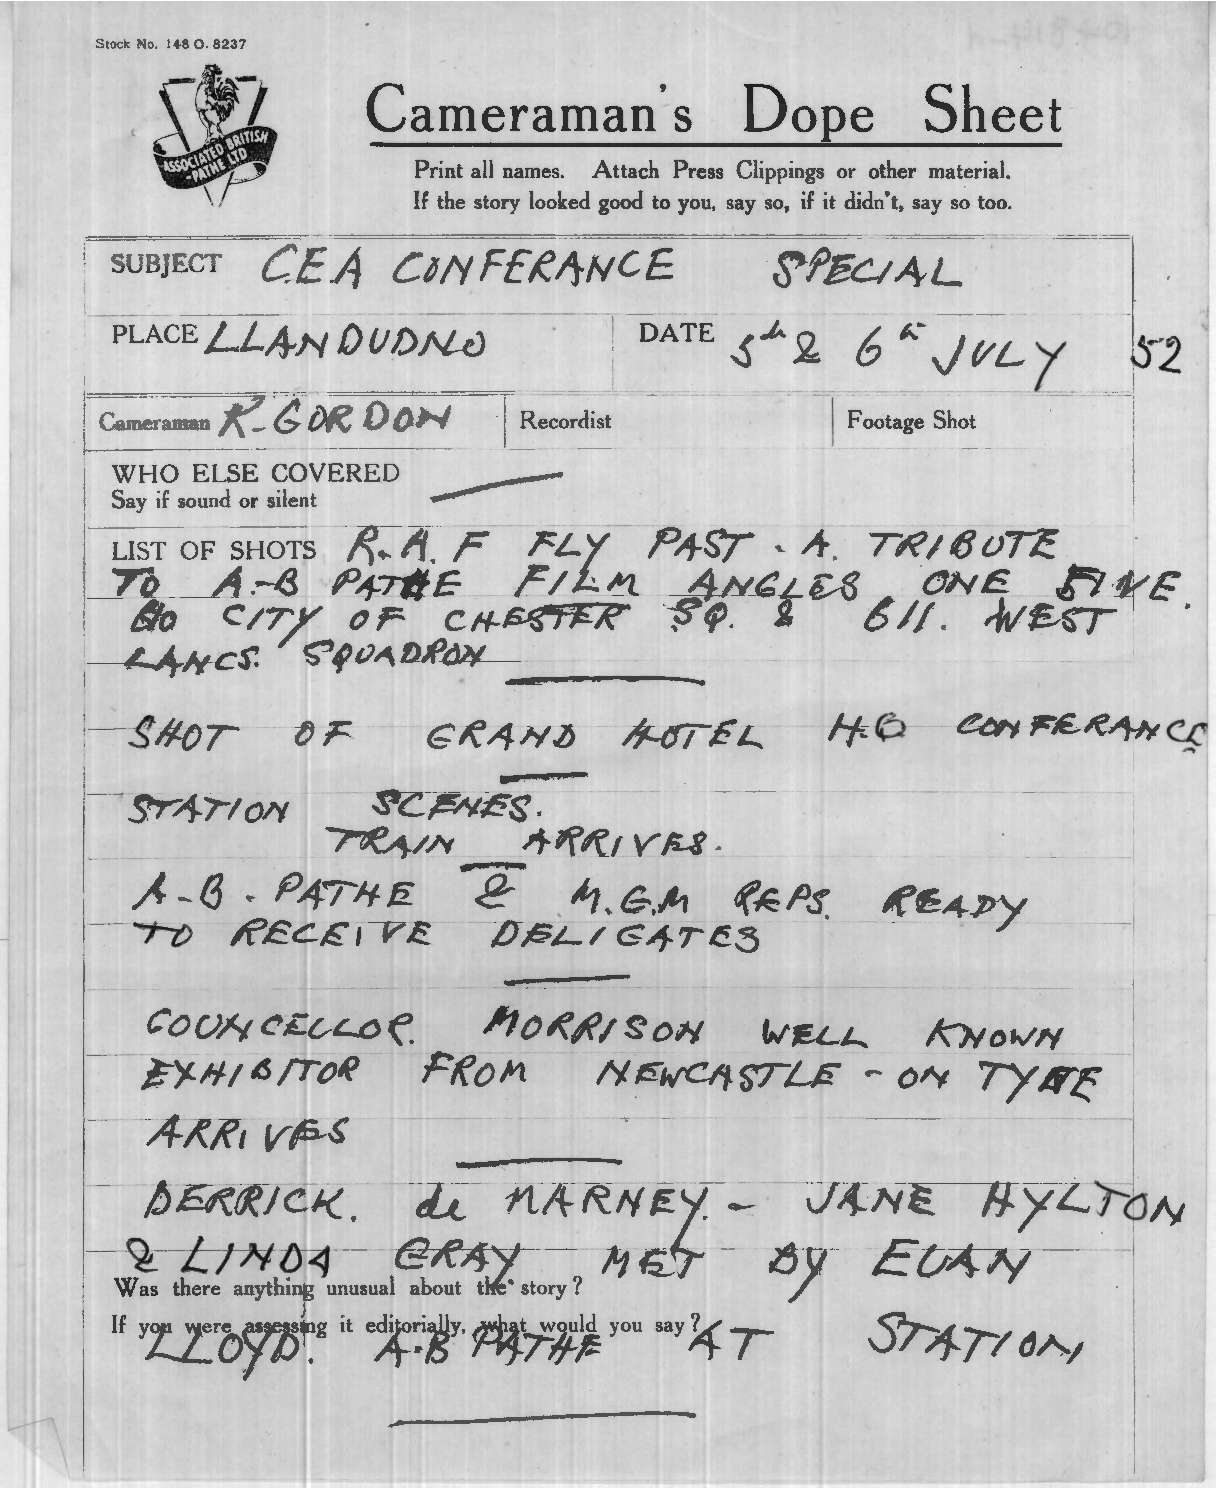 Stock No. 148 O. 8237
ASSOCIATED BRITISH
-PATHE LTD
Cameraman's Dope Sheet
Print all names. Attach Press Clippings or other material.
If the story looked good to you, say so, if it didn't, say so too.
SUBJECT C.E.A CONFERANCE SPECIAL
PLACE LLANDUDNO DATE 5th & 6th JULY 52
Cameraman K. GORDON Recordist Footage Shot
WHO ELSE COVERED
Say if sound or silent
LIST OF SHOTS R.A.F FLY PAST. A. TRIBUTE
TO A.-B PATHE FILM ANGLES ONE FIVE.
CITY OF CHESTER SQ. & 611. WEST
LANCS. SQUADRON
SHOT OF GRAND HOTEL H.Q CONFERANCE
STATION SCENES.
TRAIN ARRIVES.
A-B. PATHE & M.G.M REPS. READY
TO RECEIVE DELIGATES
COUNCELLOR. MORRISON WELL KNOWN
EXHIBITOR FROM NEWCASTLE-ON TYNE
ARRIVES
DERRICK. de MARNEY. - JANE HYLTON
& LINDA GRAY MET BY EUAN
Was there anything unusual about the story?
If you were assessing it editorially, what would you say?
LLOYD. A.B PATHE AT STATION